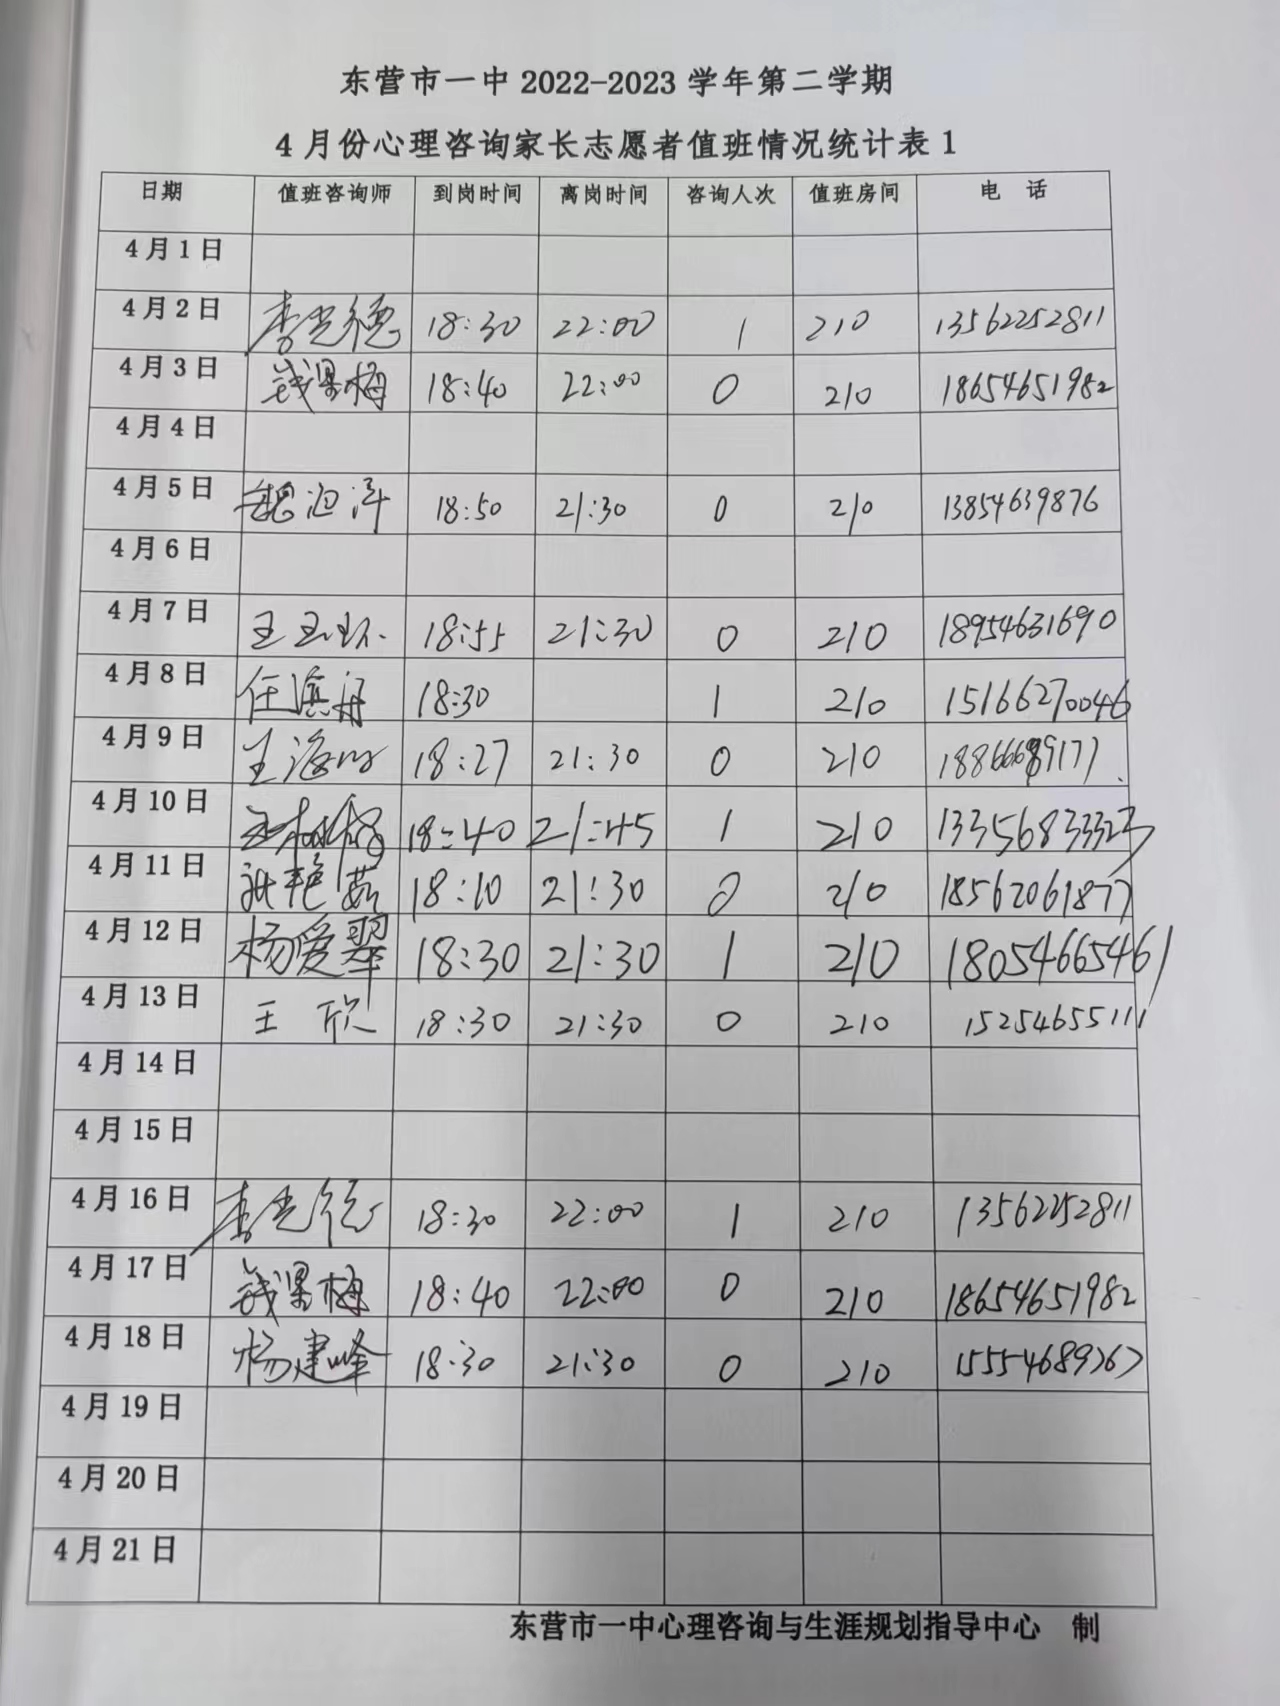 东营市一中 2022-2023 学年第二学期
4 月份心理咨询家长志愿者值班情况统计表 1
日期 值班咨询师 到岗时间 离岗时间 咨询人次 值班房间 电 话
4 月 1 日
4 月 2 日 李光德 18:30 22:00 1 210 13562252811
4 月 3 日 钱翠梅 18:40 22:00 0 210 18654651982
4 月 4 日
4 月 5 日 18:50 21:30 0 210 13854639876
4 月 6 日
4 月 7 日 王玉环 18:55 21:30 0 210 18954631690
4 月 8 日 任 18:30 1 210 15166270046
4 月 9 日 王海 18:27 21:30 0 210
4 月 10 日 王 18:40 21:45 1 210 13356833323
4 月 11 日 张艳茹 18:10 21:30 0 210 18562061877
4 月 12 日 杨爱翠 18:30 21:30 1 210 18054665461
4 月 13 日 王欣 18:30 21:30 0 210 15254655111
4 月 14 日
4 月 15 日
4 月 16 日 李光德 18:30 22:00 1 210 13562252811
4 月 17 日 钱翠梅 18:40 22:00 0 210 18654651982
4 月 18 日 杨建峰 18:30 21:30 0 210
4 月 19 日
4 月 20 日
4 月 21 日
东营市一中心理咨询与生涯规划指导中心 制